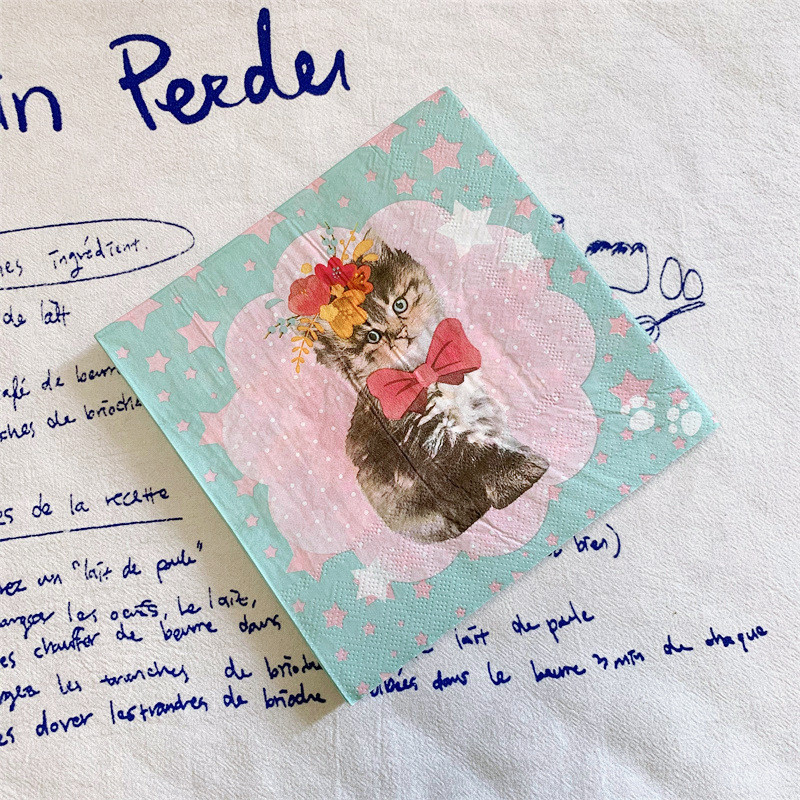 in Perdu
es ingrédient.
de lait
afé de beurre
ches de brioche
es de la recette
ez un "lait de poule"
angez les oeufs, le lait,
bien)
es chauffer de beurre dans
lait de poule
gez les tranches de brioche
es dorer les tranches de brioche ibées dans le beurre 3 min de chaque